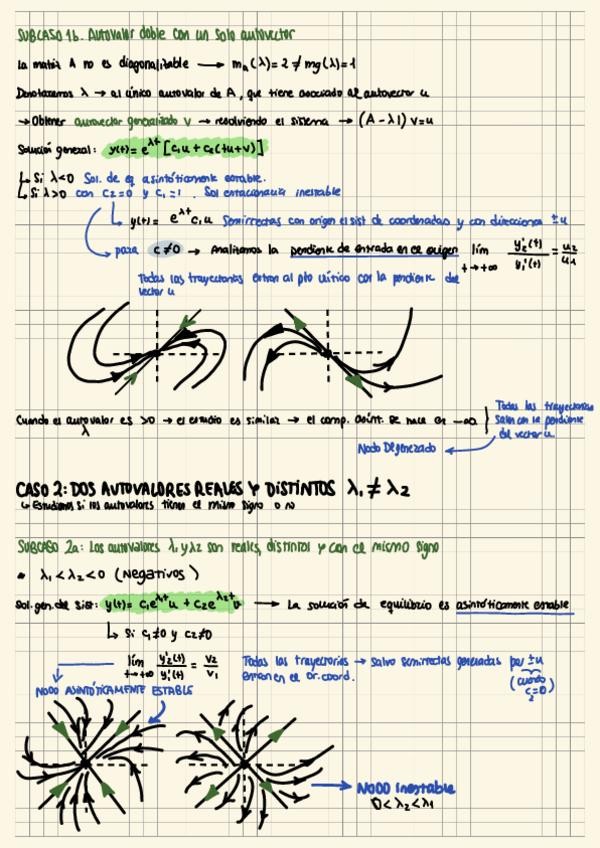 SUBCASO 1b. Autovalor doble con un solo autovector
La matriz A no es diagonalizable → ma(λ)=2 ≠ mg(λ)=1
Denotaremos λ → al único autovalor de A, que tiene asociado al autovector u
→ Obtener autovector generalizado v → resolviendo el sistema → (A-λI)v=u
Solución general: y(t)= e^λt [c₁u + c₂(tu+v)]
↳ Si λ<0 Sol. de eq asintóticamente estable.
↳ Si λ>0 con c₂=0 y c₁=1. Sol estacionaria inestable
↳ y(t)= e^λt c₁u Semirrectas con origen el sist de coordenadas y con direcciones ±u
para c≠0 → Analizamos la pendiente de entrada en el origen lím t→+∞ y₂'(t)/y₁'(t) = u₂/u₁
Todas las trayectorias entran al pto crítico con la pendiente del
vector u
Cuando el autovalor es >0 → el estudio es similar → el comp. asint. se hace en -∞
λ
Todas las trayectorias
salen con la pendiente
del vector u
Nodo Degenerado
CASO 2: DOS AUTOVALORES REALES Y DISTINTOS λ₁≠λ₂
↳ Estudiamos si los autovalores tienen el mismo signo o no
SUBCASO 2a: Los autovalores λ₁ y λ₂ son reales, distintos y con el mismo signo
λ₁<λ₂<0 (Negativos)
Sol. gen. del sist: y(t)= c₁e^λ₁t u + c₂e^λ₂t v → La solución de equilibrio es asintóticamente estable
↳ Si c₁≠0 y c₂≠0
lím t→+∞ y₂'(t)/y₁'(t) = v₂/v₁
Todas las trayectorias → salvo semirrectas generadas por ±u
entran en el or. coord.
(cuando
c₂=0)
NODO ASINTÓTICAMENTE ESTABLE
→ NODO Inestable
0<λ₂<λ₁